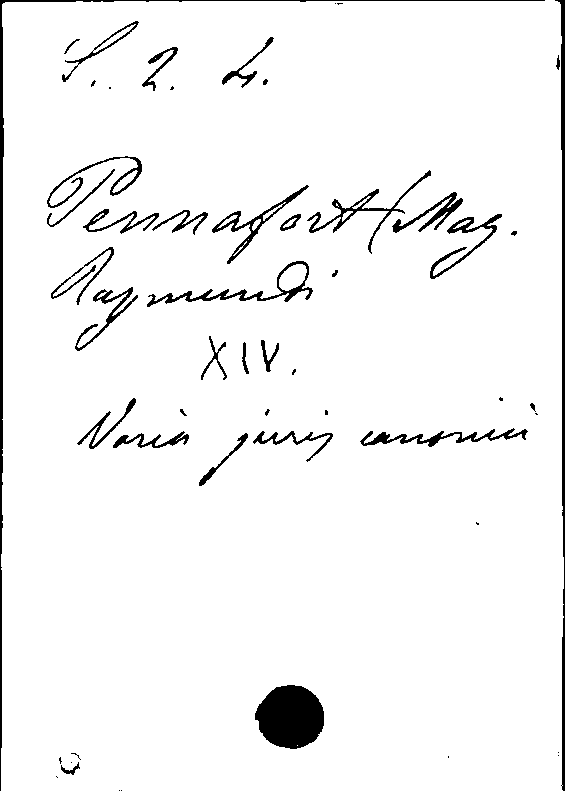 S. 2. 4.
Pennafort (Mag.
Raymundi
XIV.
Varia juris canonici